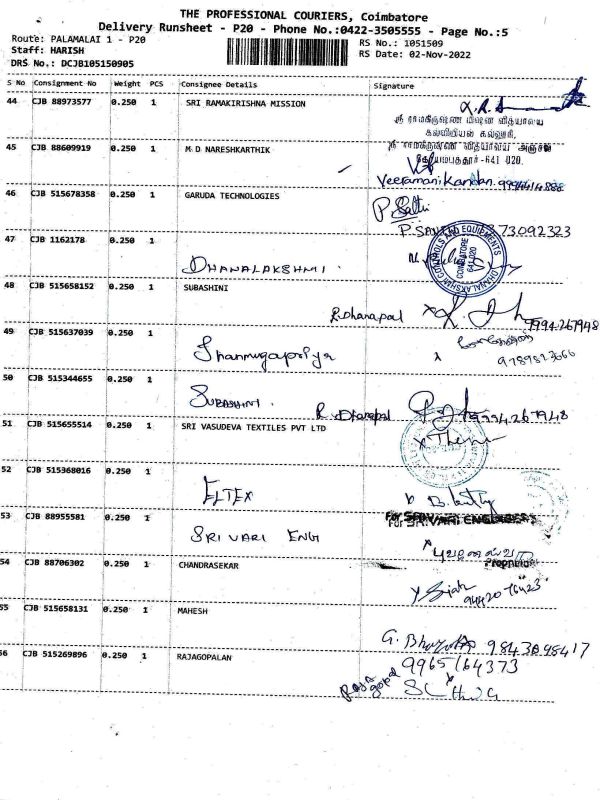 THE PROFESSIONAL COURIERS, Coimbatore
Delivery Runsheet - P20 - Phone No.:0422-3505555 - Page No.:5
Route: PALAMALAI 1 - P20
Staff: HARISH
DRS No.: DCJB105150905
RS No.: 1051509
RS Date: 02-Nov-2022
S No Consignment No Weight PCS Consignee Details Signature
44 CJB 88973577 0.250 1 SRI RAMAKIRISHNA MISSION
ஸ்ரீ ராமகிருஷ்ண மிஷன் வித்யாலய
கல்வியியல் கல்லூரி,
ஸ்ரீ ராமகிருஷ்ண வித்யாலய அஞ்சல்
கோயமபத்தூர்-641 020.
45 CJB 88609919 0.250 1 M.D NARESHKARTHIK
Veeramani Kandan.
46 CJB 515678358 0.250 1 GARUDA TECHNOLOGIES
P. Sathi
73092323
47 CJB 1162178 0.250 1 DHANALAKSHMI.
DHANALAKSHMI CONTROLS AND EQUIPMENTS
COIMBATORE
641 020
48 CJB 515658152 0.250 1 SUBASHINI
R.Dhanapal 9994267948
49 CJB 515637039 0.250 1 Shanmugapriya
9789523666
50 CJB 515344655 0.250 1 SUBASHINI.
R. Dhanapal 9994267948
51 CJB 515655514 0.250 1 SRI VASUDEVA TEXTILES PVT LTD
52 CJB 515368016 0.250 1 ELTEX
53 CJB 88955581 0.250 1 SRI VARI ENG
For SRI VARI ENGINEERS
Proprietor
54 CJB 88706302 0.250 1 CHANDRASEKAR
94420 76423
55 CJB 515658131 0.250 1 MAHESH
G. 9843098417
56 CJB 515269896 0.250 1 RAJAGOPALAN
9965164373
Raja gopal